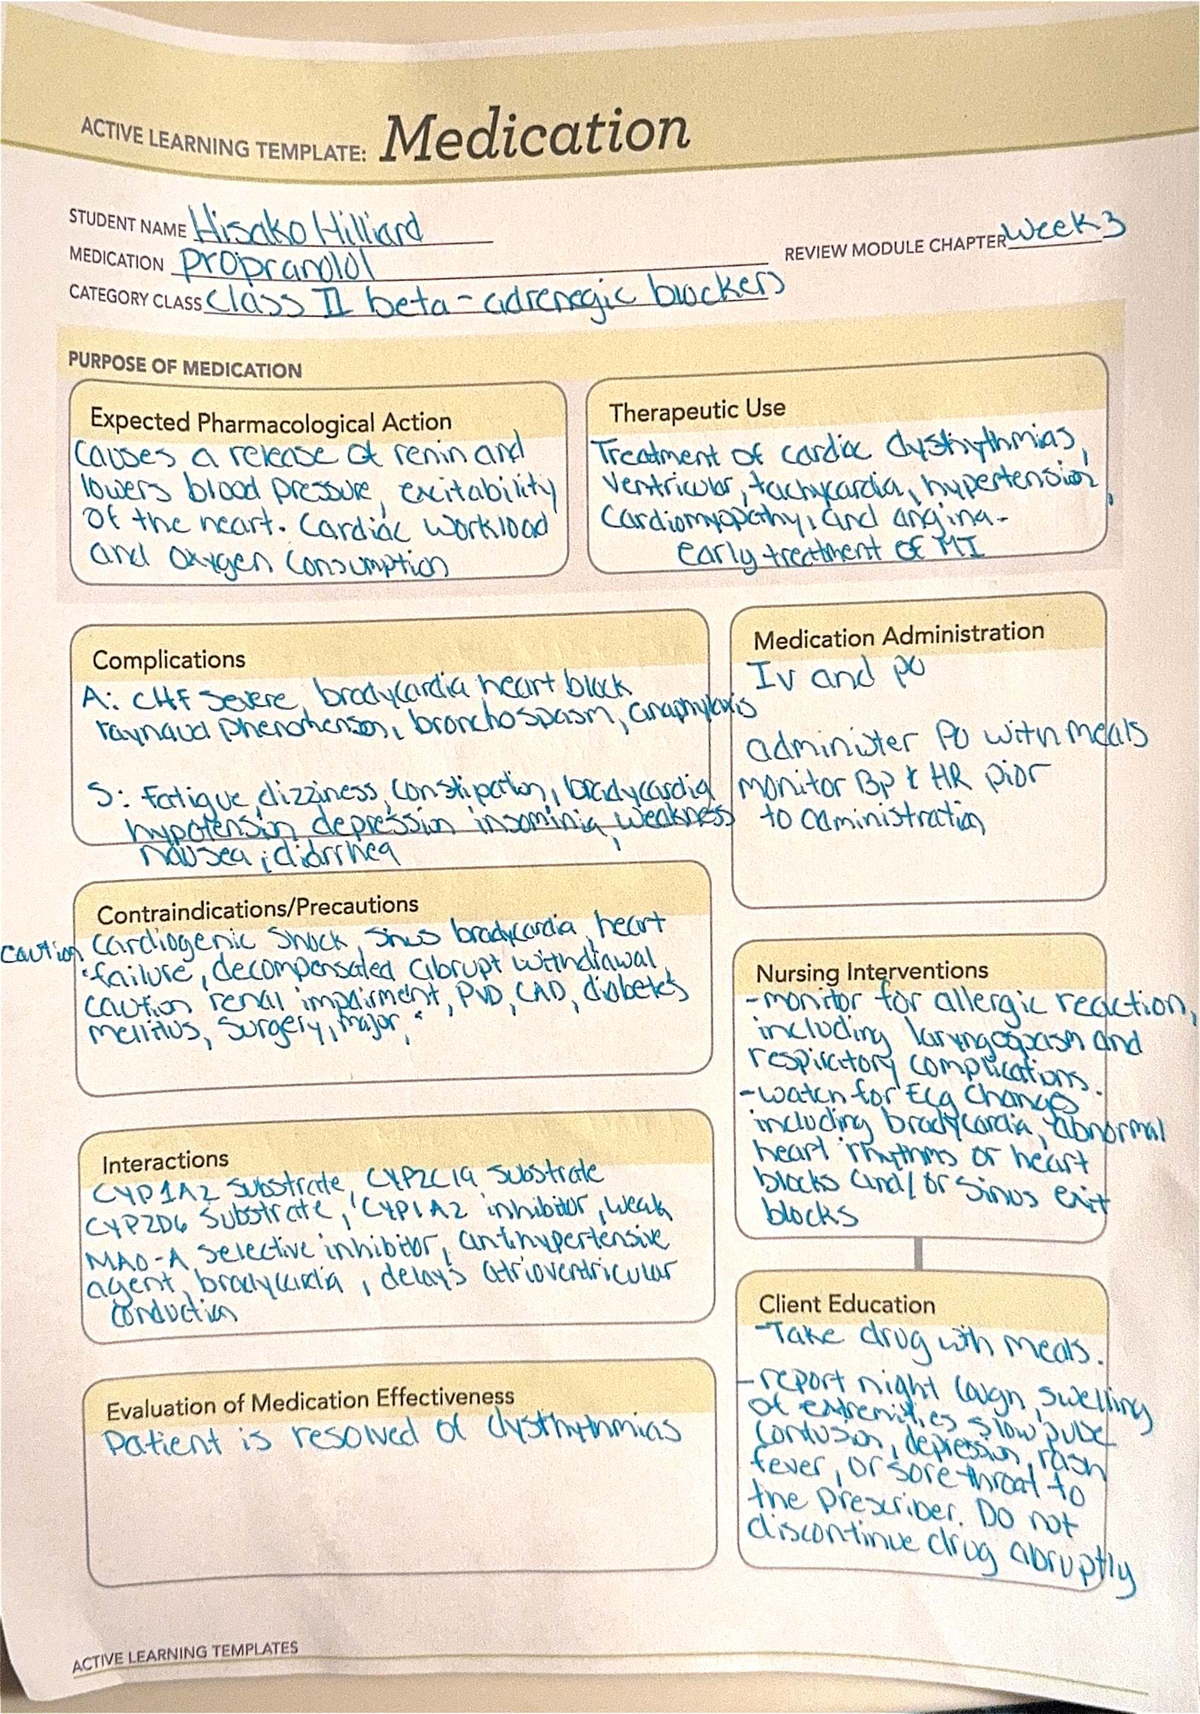 ACTIVE LEARNING TEMPLATE: Medication
STUDENT NAME Hisako Hilliard
MEDICATION propranolol
REVIEW MODULE CHAPTER Week 3
CATEGORY CLASS Class II beta-adrenegic blockers
PURPOSE OF MEDICATION
Expected Pharmacological Action
Causes a release of renin and
lowers blood pressure, excitability
of the heart. Cardiac workload
and oxygen consumption
Therapeutic Use
Treatment of cardiac dysrhythmias,
ventricular, tachycardia, hypertension,
cardiomyopathy, and angina-
early treatment of MI
Complications
A: CHF severe, bradycardia heart block
raynaud phenomenon, bronchospasm, anaphylaxis
S: fatigue, dizziness, constipation, bradycardia
hypotension, depression insominia, weakness
nausea, diarrhea
Medication Administration
IV and po
administer PO with meals
monitor BP & HR pior
to administration
Contraindications/Precautions
caution cardiogenic shock, sinus bradycardia, heart
failure, decompensated abrupt withdrawal,
caution renal impairment, PVD, CAD, diabetes
mellitus, surgery, major,
Nursing Interventions
-monitor for allergic reaction,
including laryngospasm and
respiratory complications.
-watch for ECG changes
including bradycardia, abnormal
heart rhythms or heart
blocks and/or sinus exit
blocks
Interactions
CYP1A2 substrate, CYP2C19 substrate
CYP2D6 substrate, CYP1A2 inhibitor, weak
MAO-A selective inhibitor, antihypertensive
agent, bradycardia, delays atrioventricular
conduction
Client Education
-Take drug with meals.
-report night cough, swelling
of extremities slow pulse
confusion, depression, rash
fever, or sore throat to
the prescriber. Do not
discontinue drug abruptly
Evaluation of Medication Effectiveness
Patient is resolved of dysrhythmias
ACTIVE LEARNING TEMPLATES